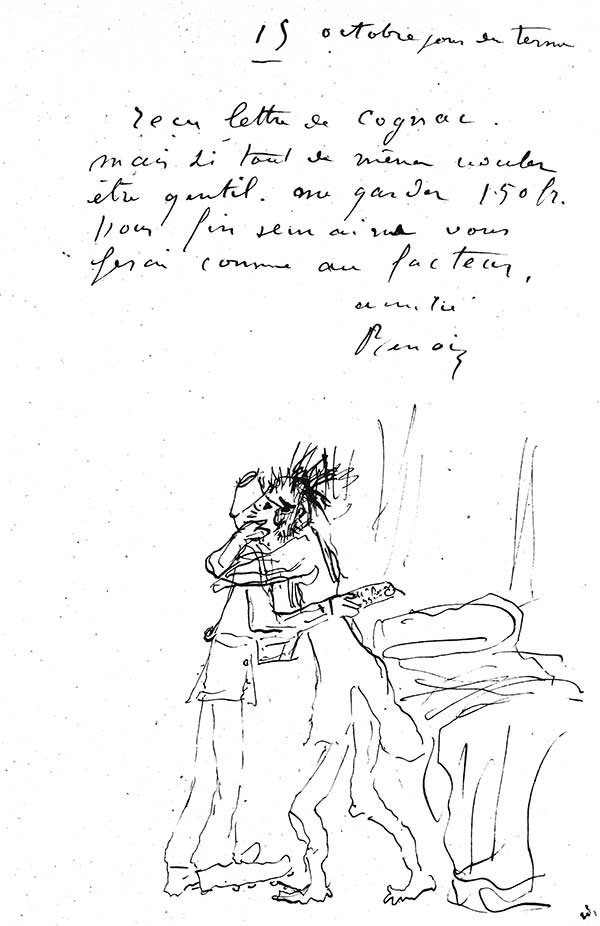 15 octobre jour du terme
reçu lettre de Cognac.
mais si tout de même vouler
être gentil. me garder 150 fr.
pour fin semaine vous
ferai comme au facteur.
amitié
Renoir